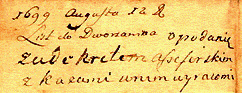 1699 Augusta 12 d
List do Dworzanina o podanie
za dekretem assesorskim
z kazami innymi